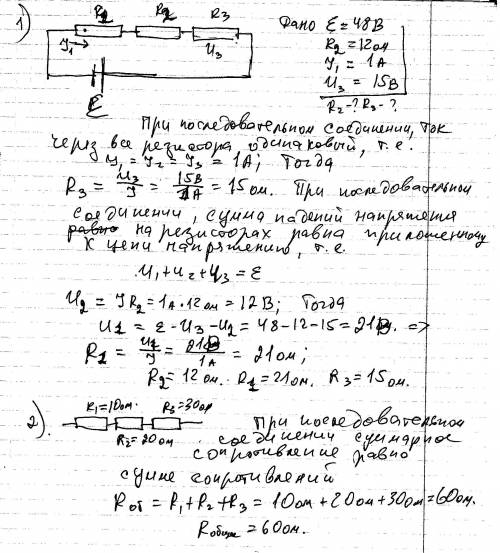 1)
R1 R2 R3
Y1 →
U3
ε
Дано ε = 48В
R2 = 12ом
Y1 = 1А
U3 = 15В
R2-? R3-?
При последовательном соединении, ток
через все резистора одинаковый, т.е.
Y1 = Y2 = Y3 = 1А; Тогда
R3 = U3/Y = 15В/1А = 15ом. При последовательном
соединении, сумма падений напряжения
равно на резисторах равна приложенному
к цепи напряжению, т.е.
U1+U2+U3 = ε
U2 = YR2 = 1А·12ом = 12В; Тогда
U1 = ε - U3 - U2 = 48-12-15 = 21В. =>
R1 = U1/Y = 21В/1А = 21ом;
R2 = 12ом. R1 = 21ом. R3 = 15ом.
2).
R1=10ом. R3=30ом
R2=20ом
При последовательном
соединении сумарное
сопротивление равно
сумме сопротивлений
Rоб = R1+R2+R3 = 10ом+20ом+30ом=60ом.
Rобщ = 60ом.